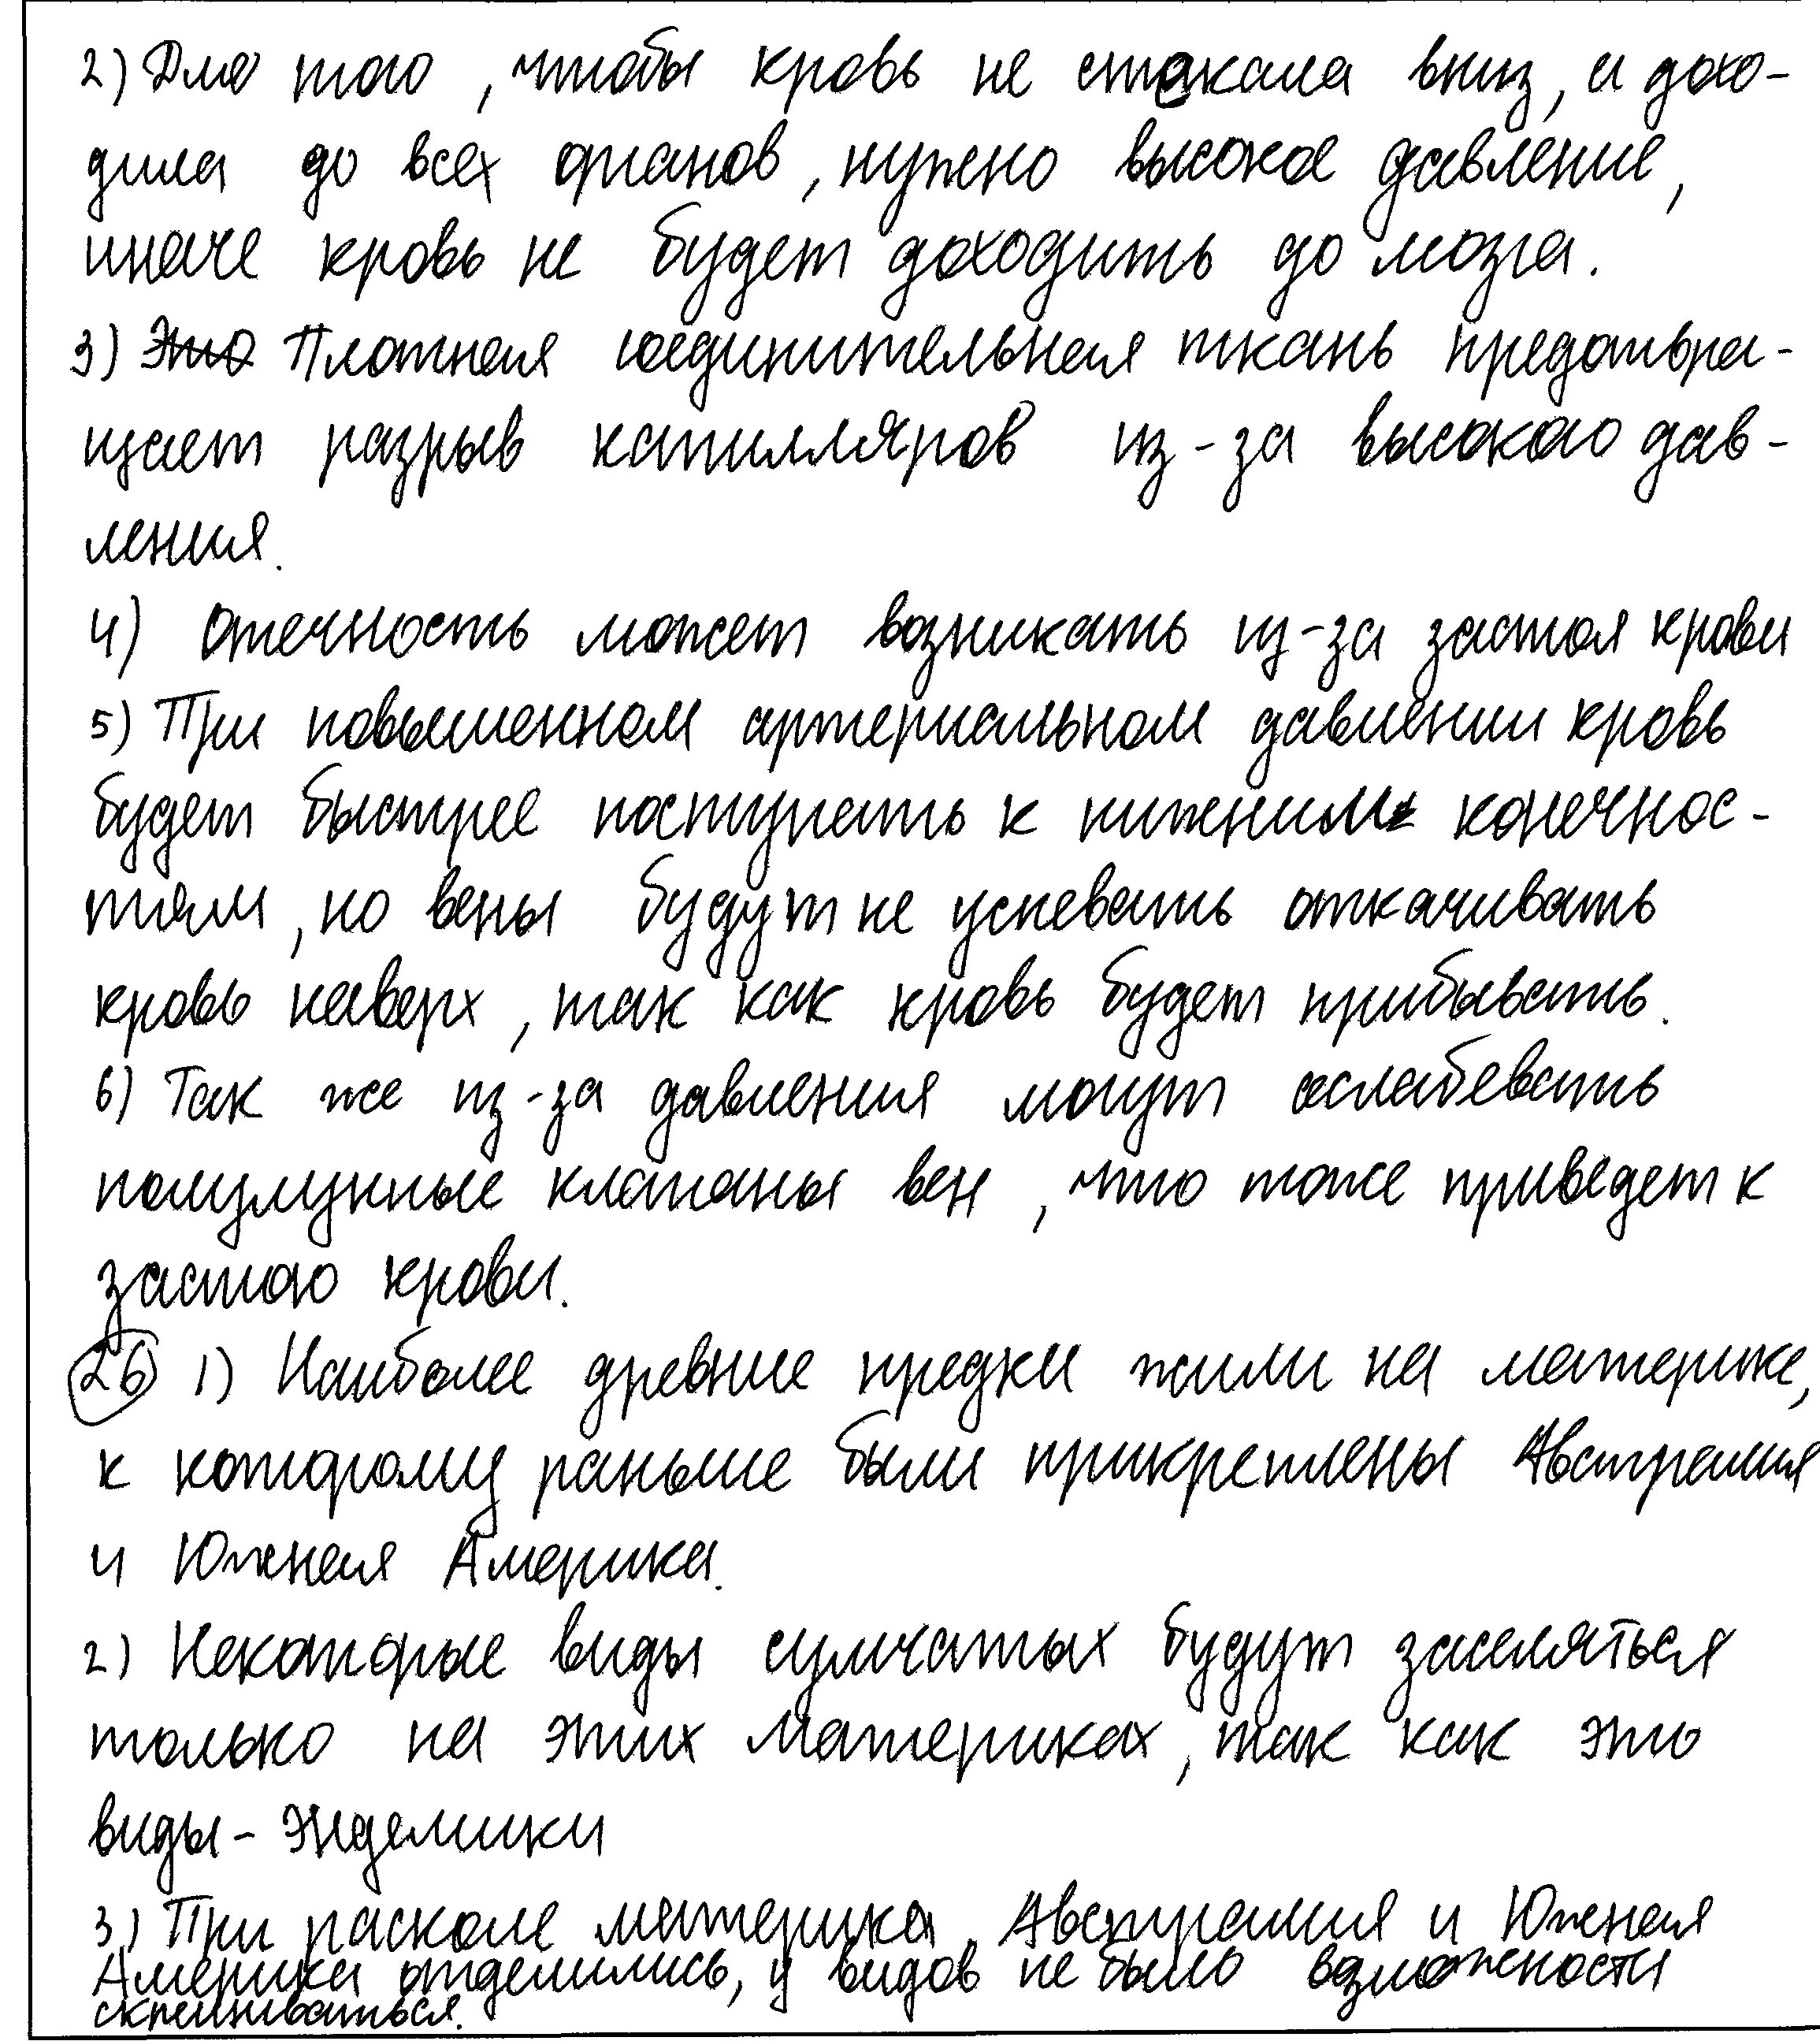 2) Для того, чтобы кровь не стекала вниз, и дохо-
дила до всех органов, нужно высокое давление,
иначе кровь не будет доходить до мозга.
3) ~~Это~~ Плотная соединительная ткань предотвра-
щает разрыв капилляров из-за высокого дав-
ления.
4) Отечность может возникать из-за застоя крови
5) При повышенном артериальном давлении кровь
будет быстрее поступать к нижним конечнос-
тям, но вены будут не успевать откачивать
кровь наверх, так как кровь будет прибывать.
6) Так же из-за давления могут ослабевать
полулунные клапаны вен, что тоже приведет к
застою крови.
26 1) Наиболее древние предки жили на материке,
к которому раньше были прикреплены Австралия
и Южная Америка.
2) Некоторые виды сумчатых будут заселяться
только на этих материках, так как это
виды-эндемики
3) При расколе материка Австралия и Южная
Америка отделились, у видов не было возможности
скрещиваться.